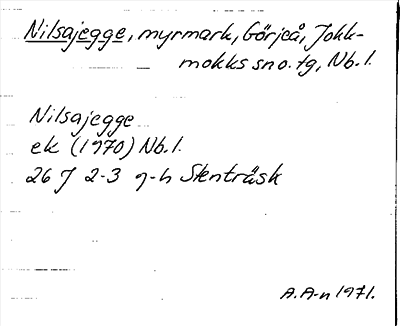 Nilsajegge, myrmark, Görjeå, Jokk-
mokks sn o. tg, Nb. l.
Nilsajegge
ek (1970) Nb. l.
26 J 2-3 g-h Stenträsk
A. A-n 1971.